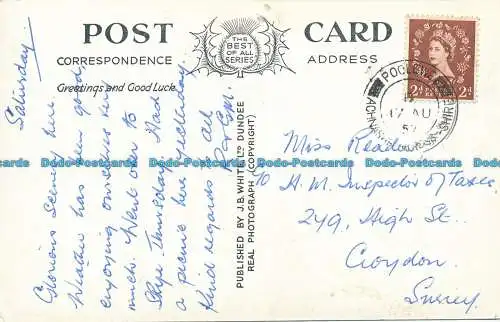 POST CARD
THE
BEST
OF ALL
SERIES
CORRESPONDENCE
ADDRESS
Greetings and Good Luck
Saturday.
Glorious scenery here.
Weather has been good
enjoying ourselves very
much. Went over to
Skye Thursday. Had
a picnic here yesterday
Kind regards to all
PUBLISHED BY J.B. WHITE LTD DUNDEE
REAL PHOTOGRAPH (COPYRIGHT)
Miss Readon
H. M. Inspector of Taxes
249, High St.
Croydon.
Surrey.
2d 2d
17 AU
Postcards Ltd Postcards Ltd Postcards Ltd Postcards Ltd